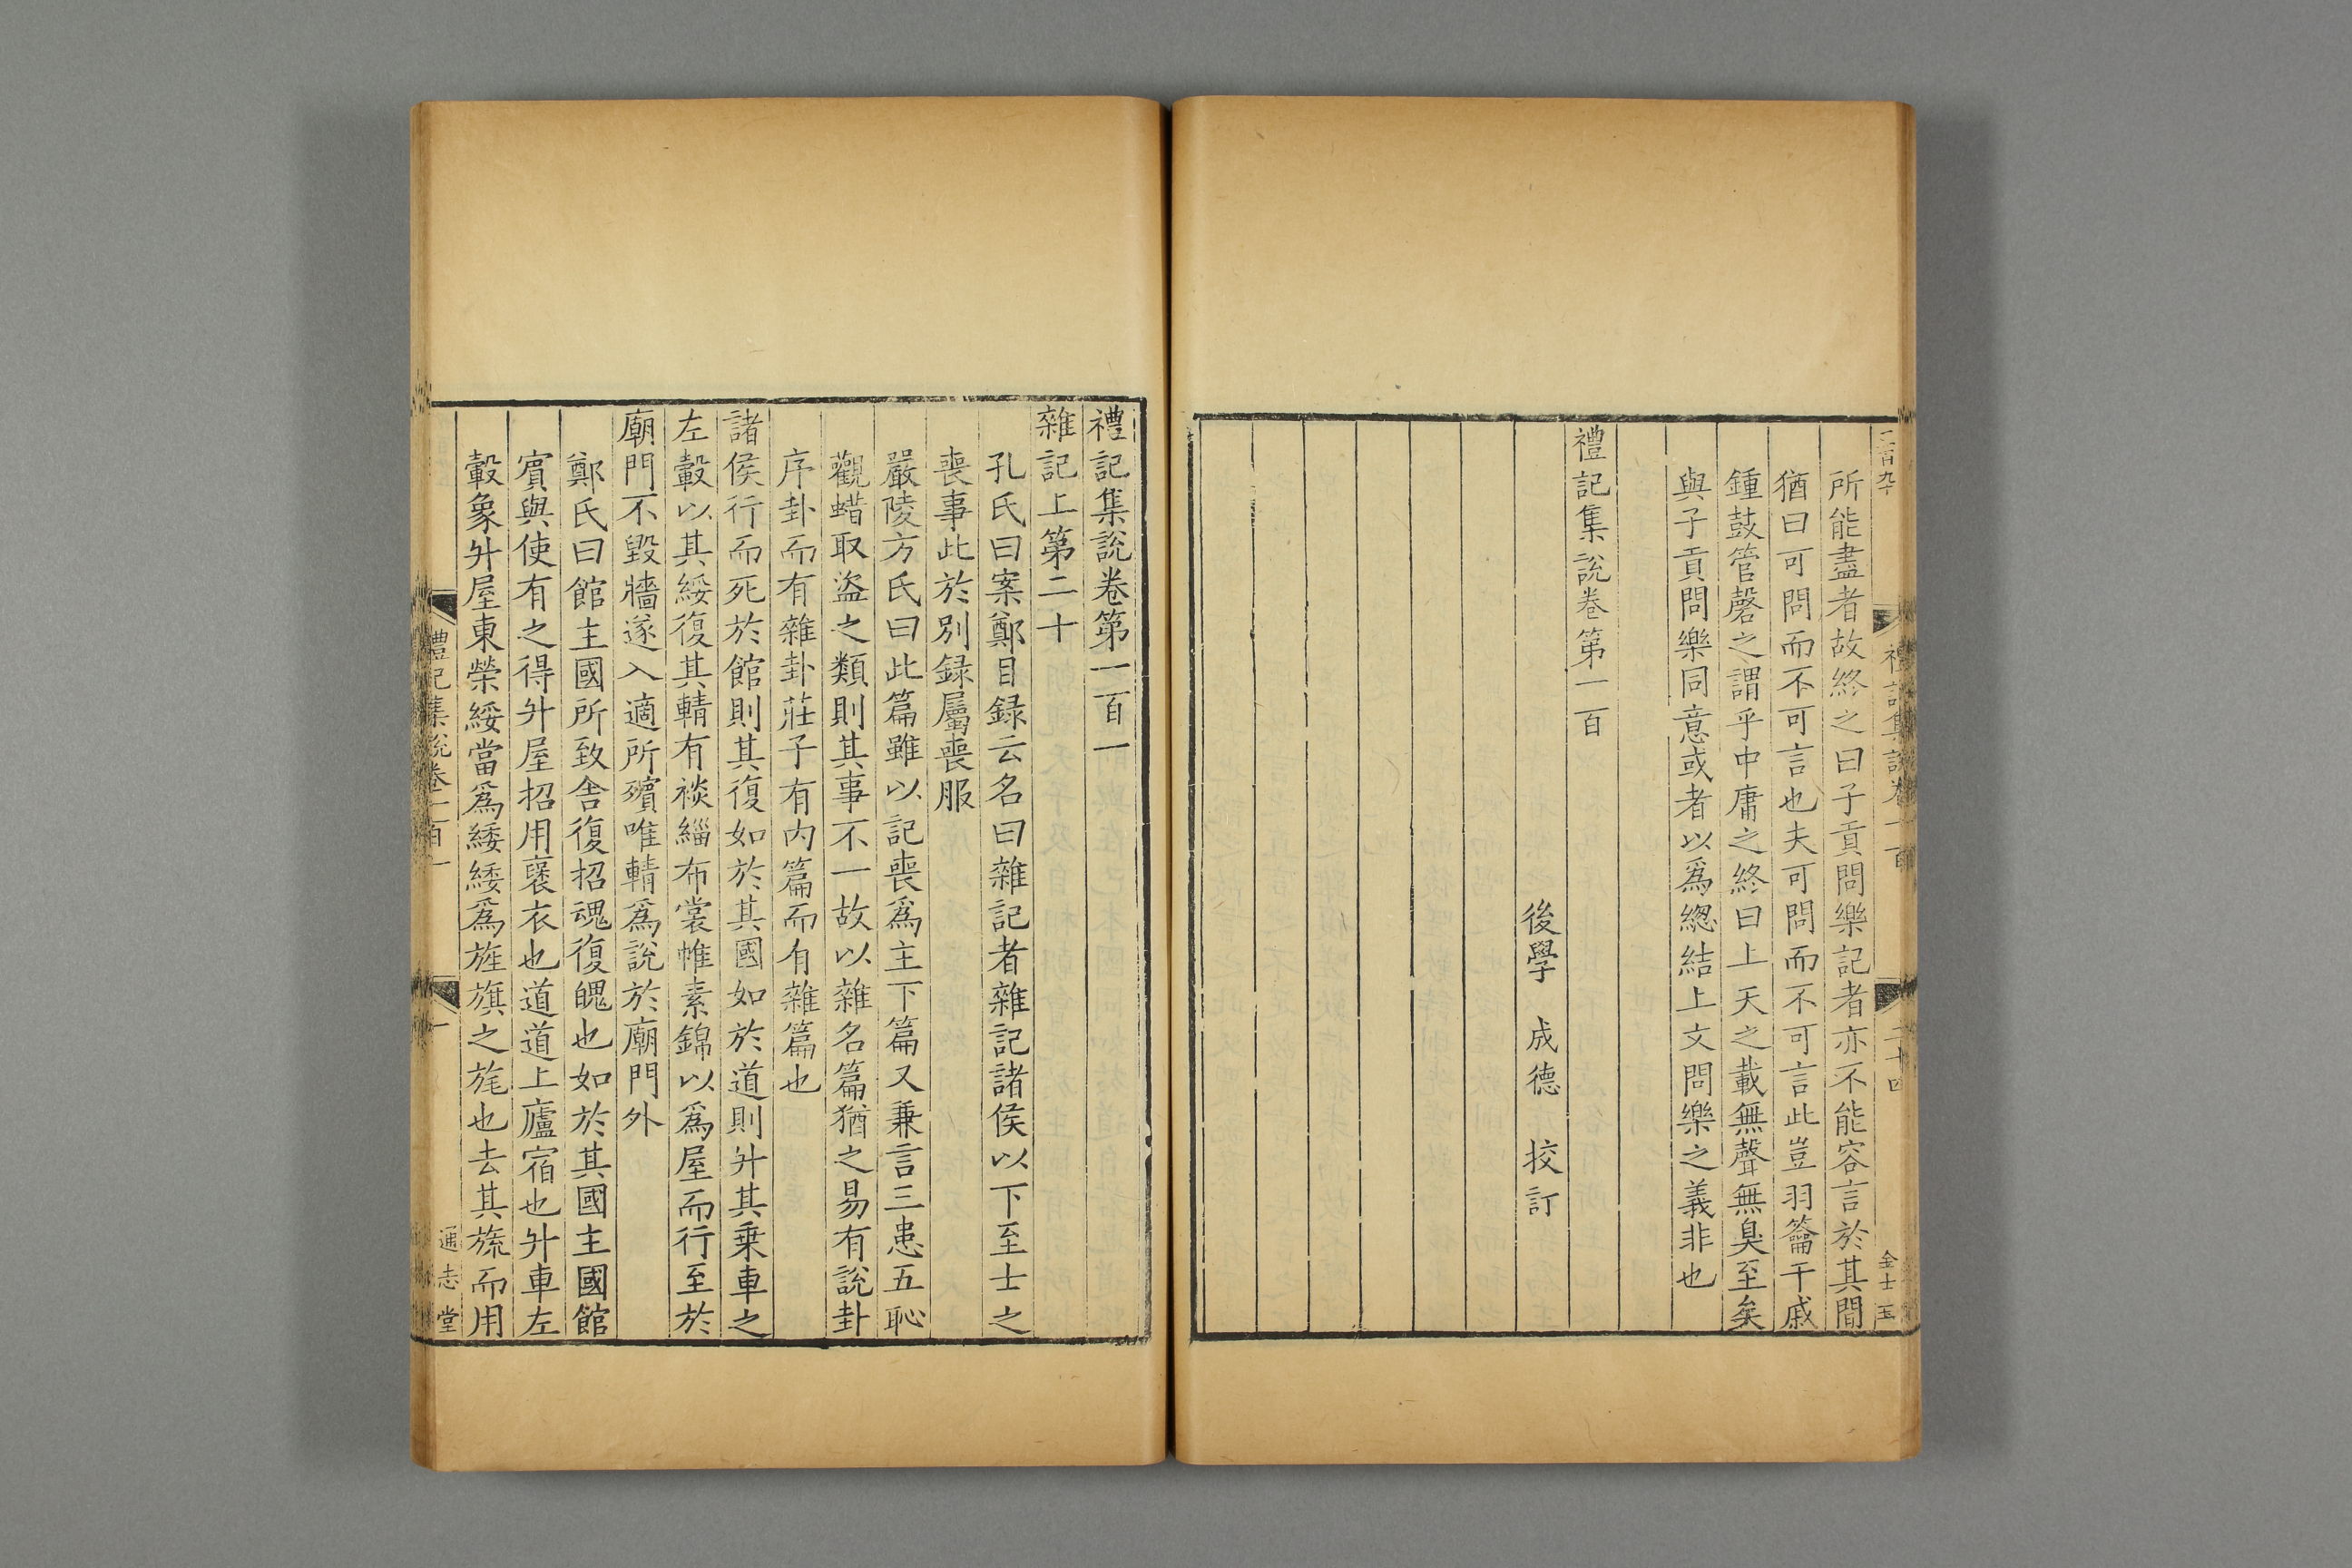 二百九十
禮記集說卷一百
二十四
全士玉
所能盡者故終之曰子貢問樂記者亦不能容言於其間
猶曰可問而不可言也夫可問而不可言此豈羽籥干戚
鍾鼓管磬之謂乎中庸之終曰上天之載無聲無臭至矣
與子貢問樂同意或者以爲緫結上文問樂之義非也
禮記集說卷第一百
後學 成德 挍訂
禮記集說卷第一百一
雜記上第二十
孔氏曰案鄭目録云名曰雜記者雜記諸侯以下至士之
喪事此於別録屬喪服
嚴陵方氏曰此篇雖以記喪爲主下篇又兼言三患五恥
觀蜡取盜之類則其事不一故以雜名篇猶之易有說卦
序卦而有雜卦莊子有内篇而有雜篇也
諸侯行而死於館則其復如於其國如於道則升其乗車之
左轂以其綏復其輤有裧緇布裳帷素錦以爲屋而行至於
廟門不毀牆遂入適所殯唯輤爲說於廟門外
鄭氏曰館主國所致舍復招魂復魄也如於其國主國館
賔與使有之得升屋招用襃衣也道道上廬宿也升車左
轂象升屋東榮綏當爲緌緌爲旌旗之旄也去其旒而用
禮記集說卷一百一
一
通志堂